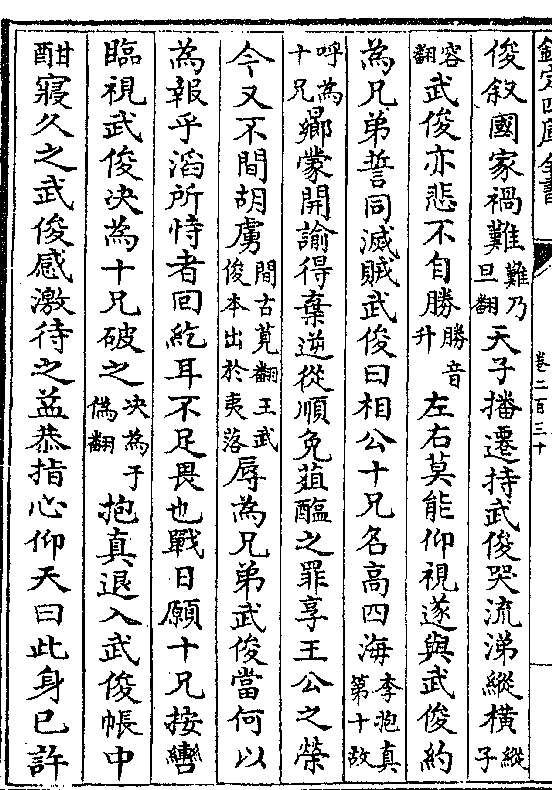 欽定四庫全書
卷二百三十
俊叙國家禍難難乃旦翻天子播遷持武俊哭流涕縱横縱子
容翻武俊亦悲不自勝勝音升左右莫能仰視遂與武俊約
為兄弟誓同滅賊武俊曰相公十兄名高四海李抱真第十故
呼為十兄曏蒙開諭得棄逆從順免葅醢之罪享王公之榮
今又不間胡虜間古莧翻王武俊本出於夷落辱為兄弟武俊當何以
為報乎滔所恃者回紇耳不足畏也戰日願十兄按轡
臨視武俊决為十兄破之决為于偽翻抱真退入武俊帳中
酣寢久之武俊感激待之益恭指心仰天曰此身已許